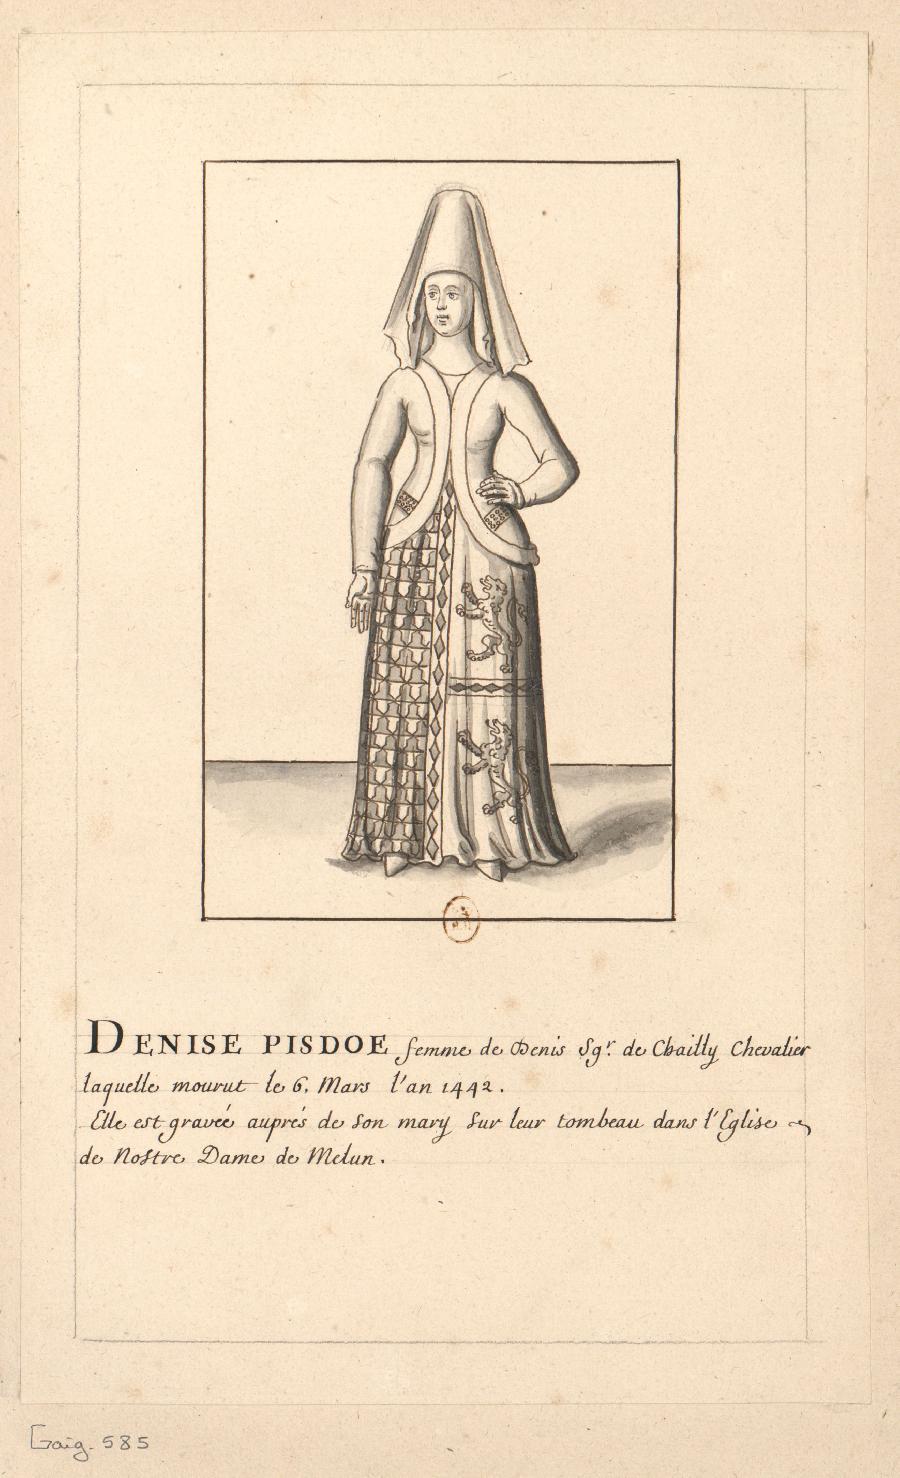 DENISE PISDOE femme de Denis Sgr. de Chailly Chevalier
laquelle mourut le 6. Mars l'an 1442.
Elle est gravée auprés de son mary sur leur tombeau dans l'Eglise
de Nostre Dame de Melun.
Gaig. 585